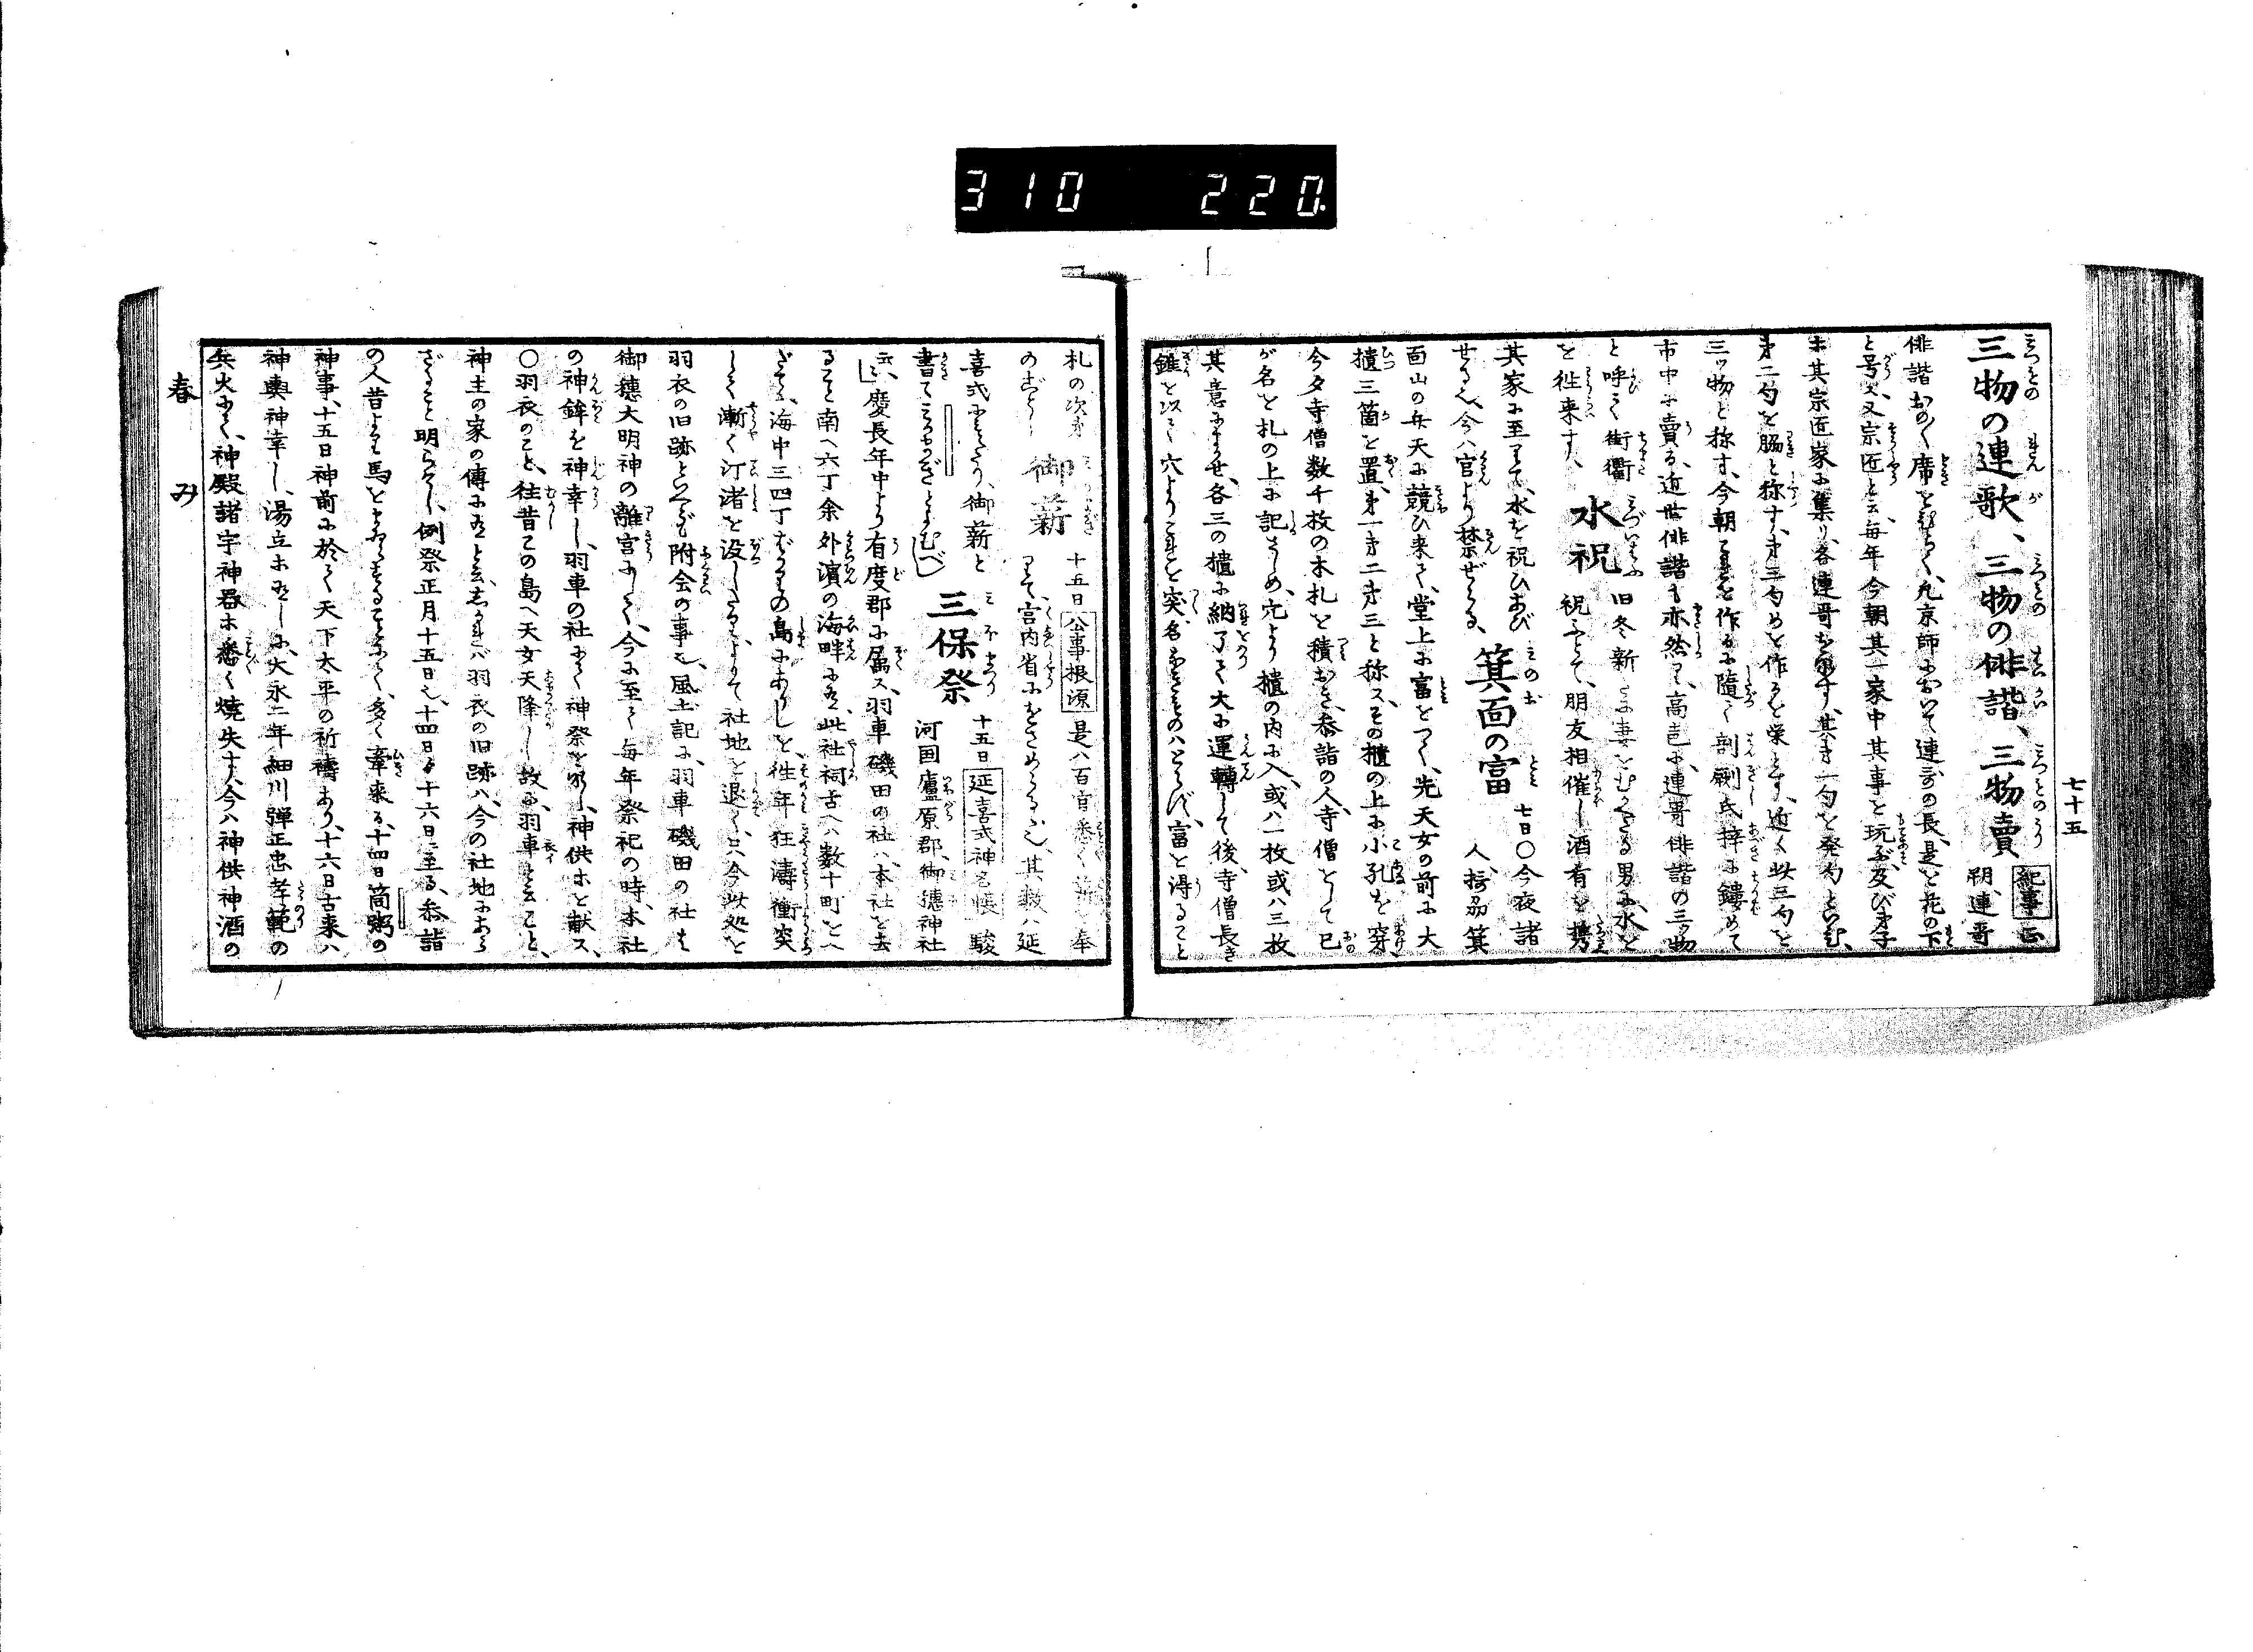 310 220.
七十五
三物の連歌、三物の俳諧、三物賣 紀事 正
朔、連哥
俳諧おの〳〵席をひらく、凡京師において連哥の長、是を花の下
と号ス、又宗匠と云、毎年今朝其一家中其事を玩ぶ、及び弟子
ホ其宗匠家に集り、各連哥をなす、其第一句を発句といひ、
第二句を脇と称す、第三句めを作るを栄とす、近く此三句を
三ッ物と称す、今朝これを作るに隨て剞劂氏梓に鏤めて
市中に賣る、近世俳諧も亦然り、高声に連哥俳諧の三ッ物
と呼て街衢
を徃来す、
水祝
旧冬新に妻をむかへたる男に、水を
祝ふとて、朋友相催し酒肴を携
其家に至りて、水を祝ひあび
せるに、今ハ官より禁ぜらる、
箕面の富
七日〇今夜諸
人、摂州箕
面山の弁天に競ひ来て、堂上に富をつく、先天女の前に大
櫃三箇を置、第一第二第三と称ス、その櫃の上に小孔を穿、
今夕寺僧数千枚の木札を積おき、参詣の人、寺僧として己
が名を札の上に記さしめ、穴より櫃の内に入、或ハ一枚或ハ三枚、
其意にまかせ、各三の櫃に納了て大に運轉して後、寺僧長き
錐を以て穴よりこれを突、名あるものハとらバ、富を得ること
札の次第
のごとし
御薪
十五日 公事根源 是ハ百官悉く薪を奉
りて、宮内省にをさめらるゝ也、其数ハ延
喜式にミえたり、御薪と
書てミかまぎとよむべし
三保祭
十五日 延喜式神名帳 駿
河国廬原郡、御穂神社
云、慶長年中より有度郡に属ス、羽車磯田の社ハ、本社を去
ること南へ六丁余、外濱の海畔にあり、此社祠古ヘハ数十町をへ
だてゝ、海中三四丁ばかりの島にありしを、徃年狂濤衝突
して漸く汀渚を没したるに、よりて社地を退く、只今此処を
羽衣の旧跡といへども附会の事也、風土記に、羽車磯田の社は
御穂大明神の離宮にして、今に至て毎年祭祀の時、本社
の神鉾を神幸し、羽車の社にて神祭をなし、神供ホを献ス、
〇羽衣のこと、徃昔この島へ天女天降りし故に、羽車と云こと、
神主の家の傳にありと云、しかれバ羽衣の旧跡ハ、今の社地にあら
ざること明らけし、例祭正月十五日也、十四日ゟ十六日ニ至る、参詣
の人昔より馬をよみ々することにて、多く牽来る、十四日筒粥の
神事、十五日神前に於て天下太平の祈祷あり、十六日古来ハ
神輿神幸し、湯立ホありしに、大永二年細川弾正忠孝範の
兵火にて、神殿諸宇神器ホ悉く焼失す、今ハ神供神酒の
春 み